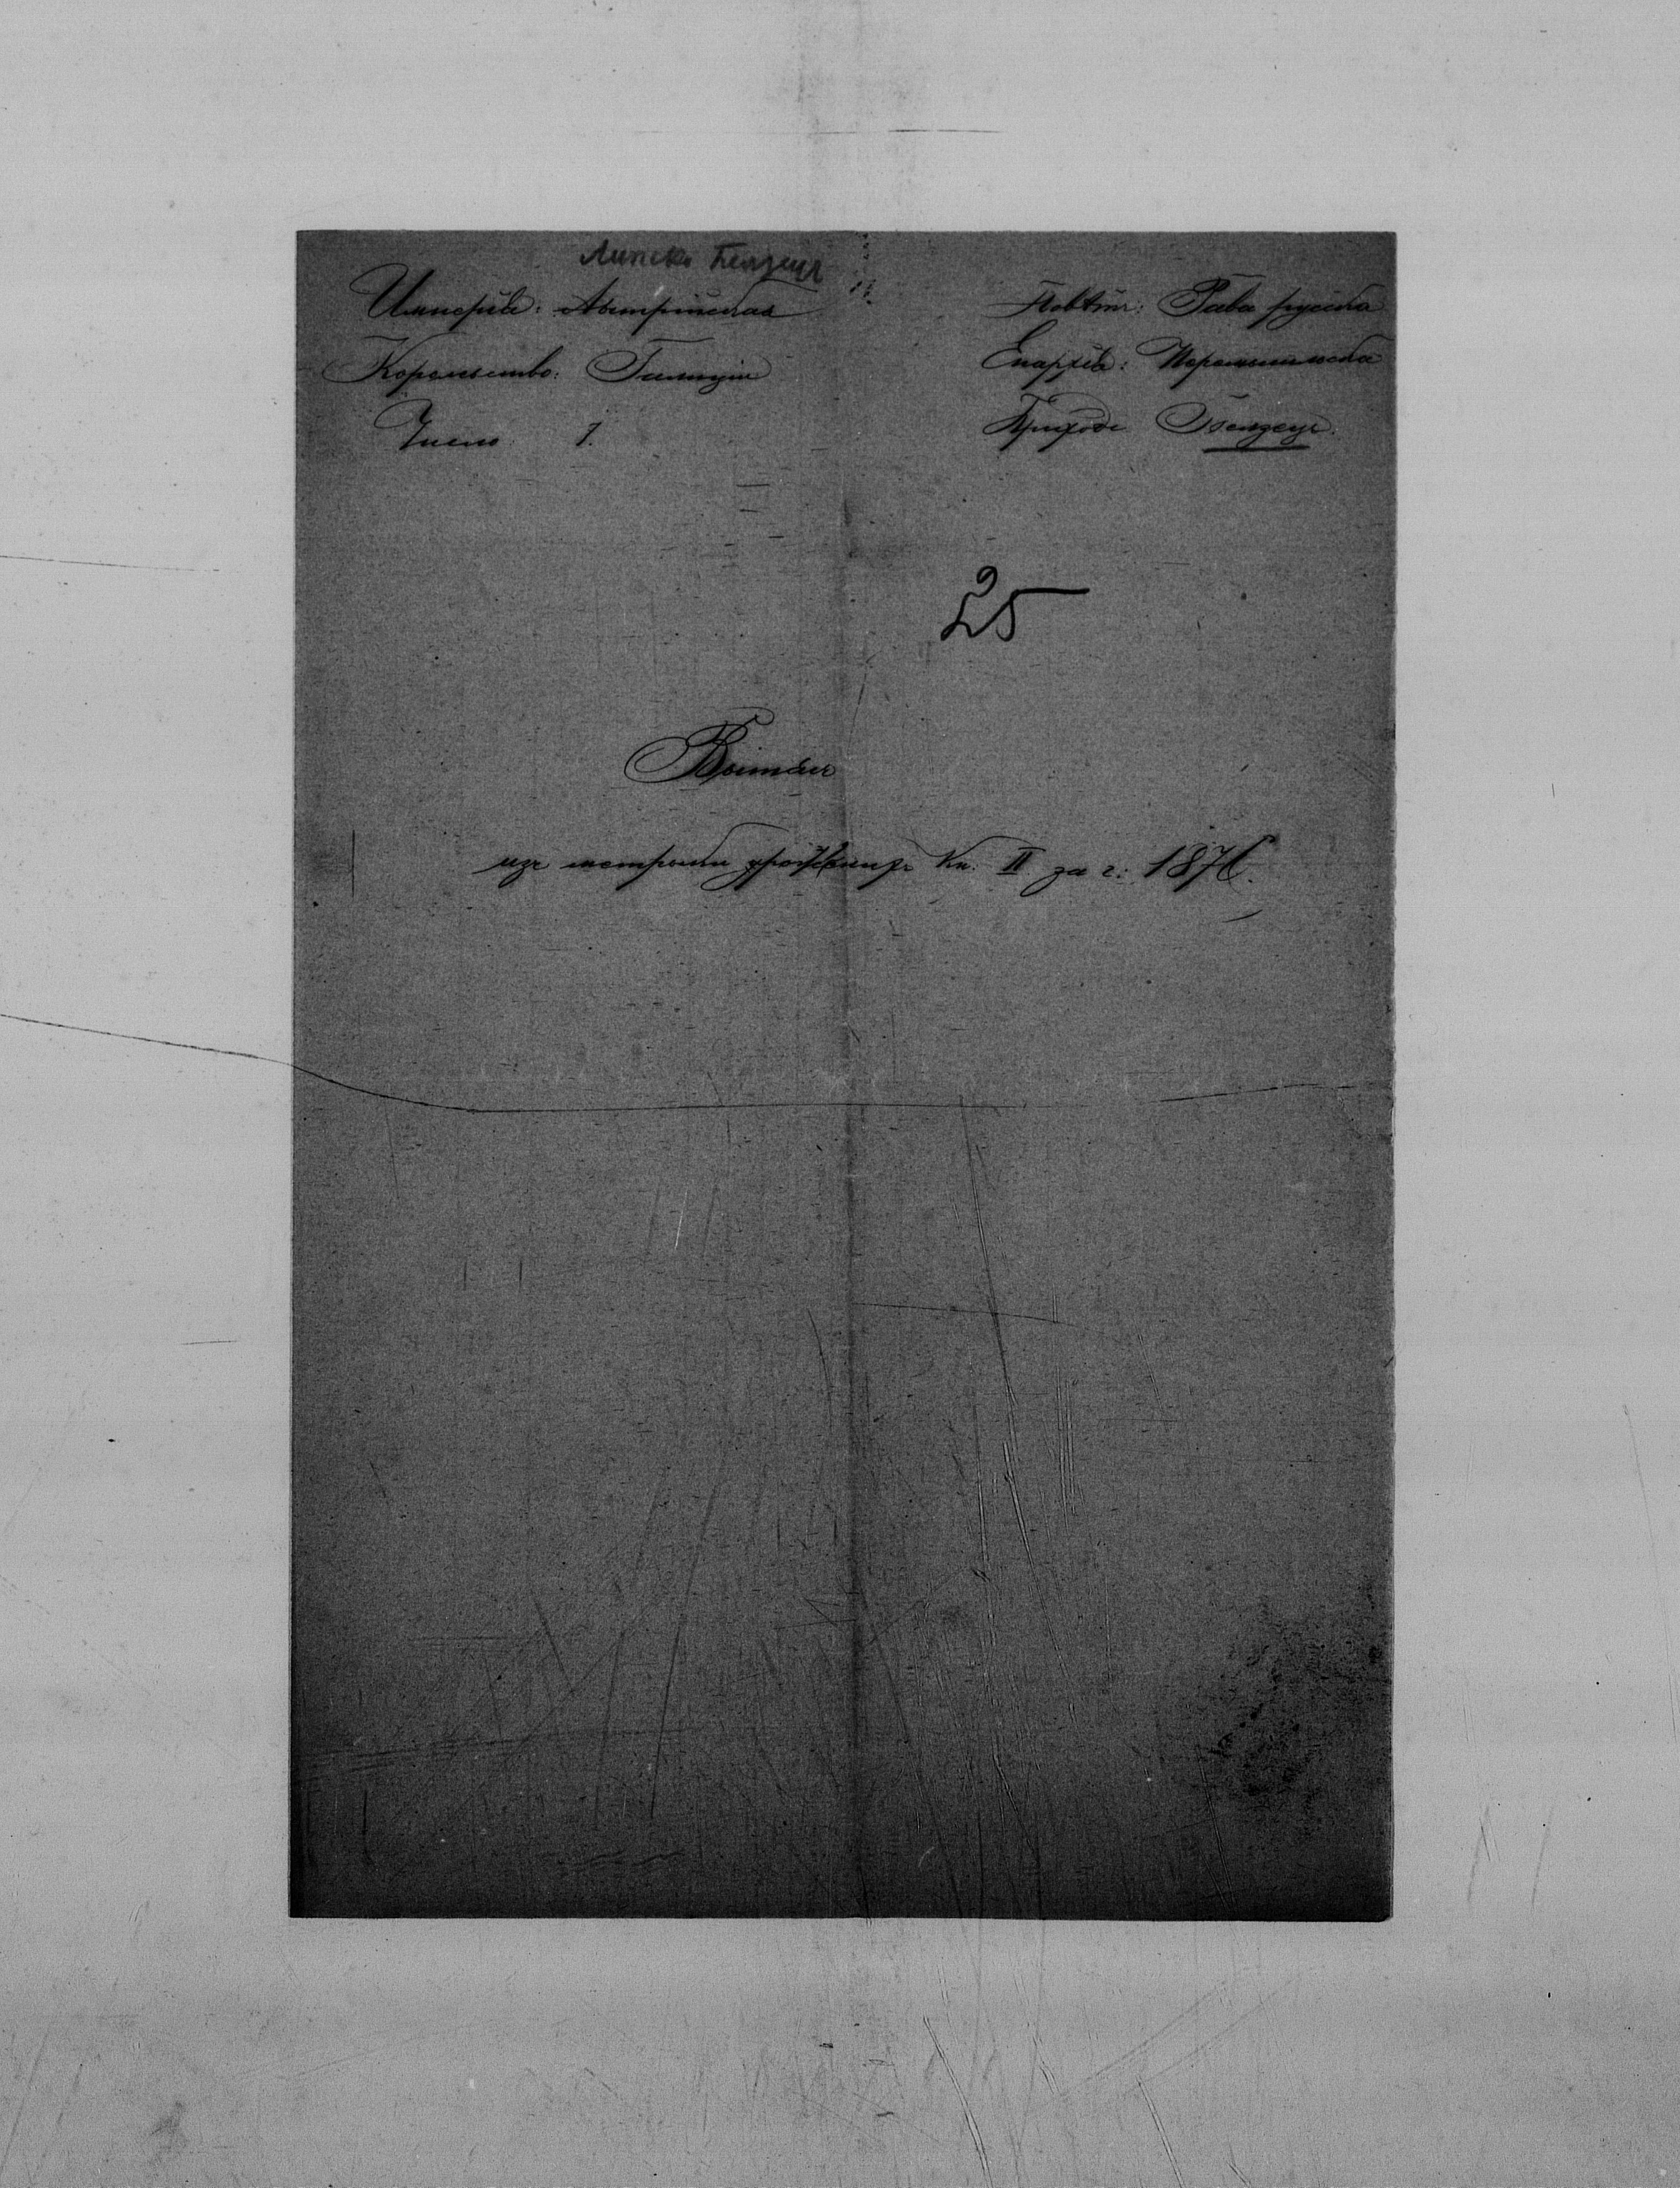 Липско Белзець
Имперія: Австрійская
Корольство: Галиція
Число: 1.
Повѣтъ: Рава руска
Епархія: Перемышльска
Приходъ Белзець.
25
Вытягъ
изъ метрыки урожденихъ Кн. II за г: 1876.